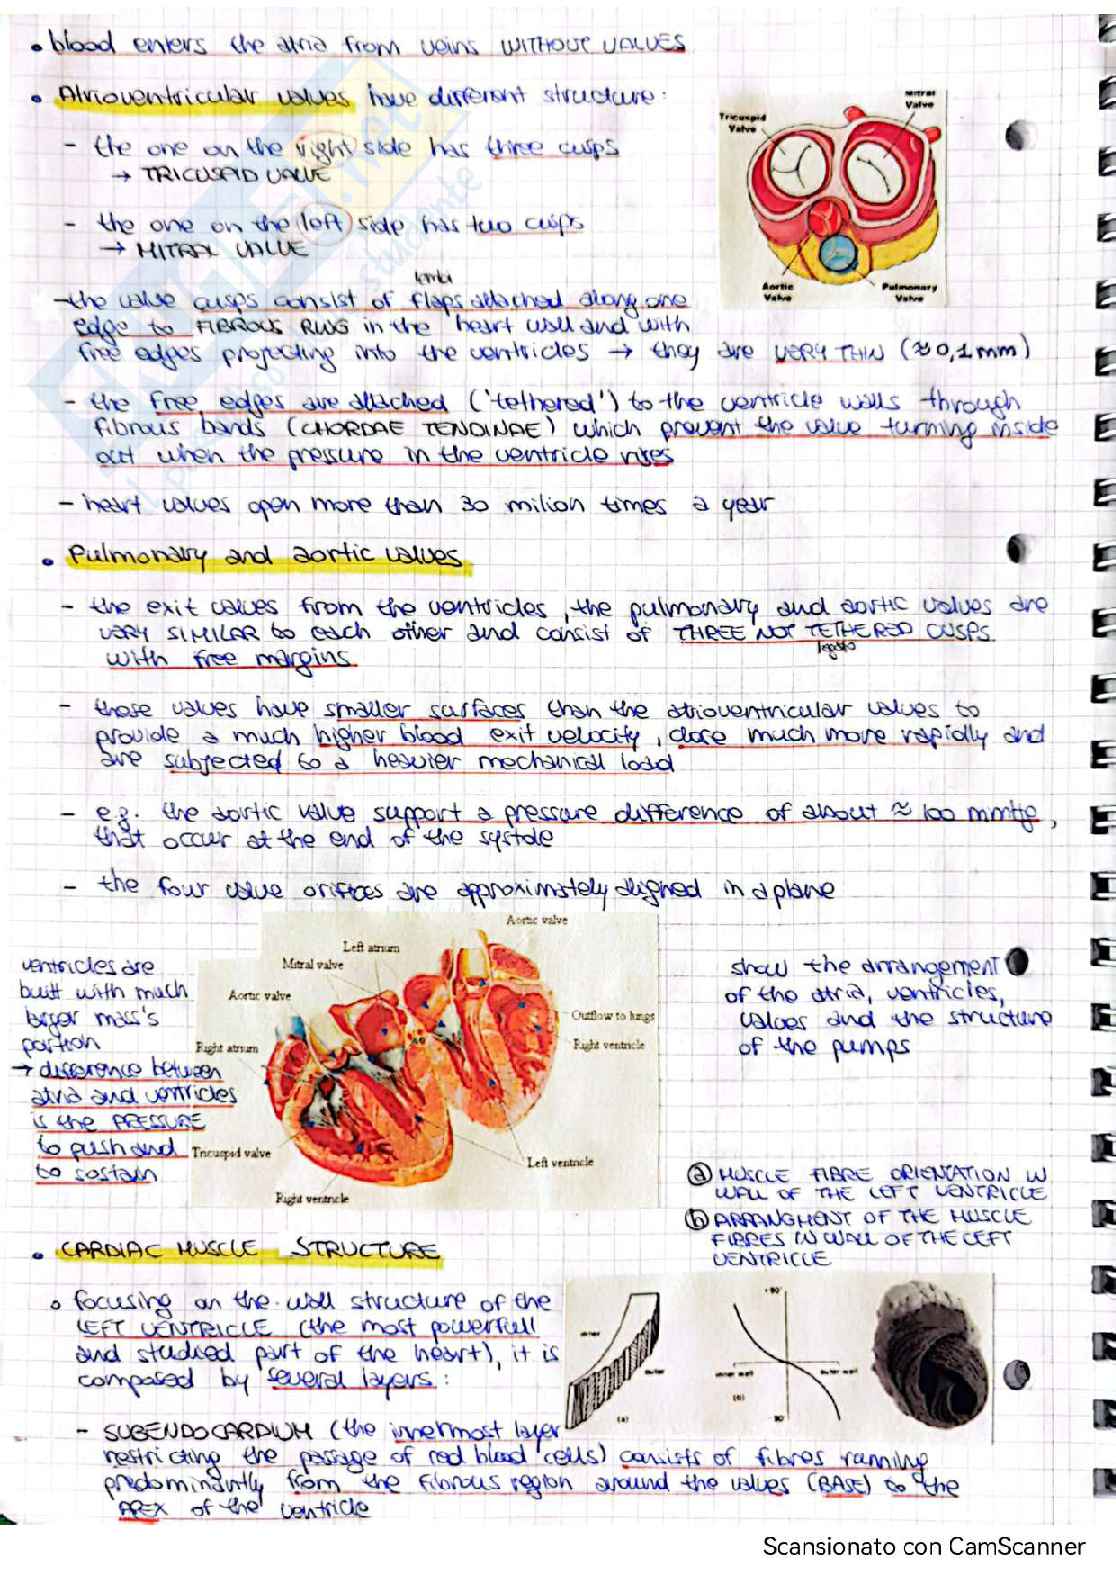 • blood enters the atria from veins WITHOUT VALVES
• Atrioventricular valves have different structure:
Mitral
Valve
Tricuspid
Valve
- the one on the right side has three cusps
→ TRICUSPID VALVE
- the one on the left side has two cusps
→ MITRAL VALVE
Aortic
Valve
Pulmonary
Valve
- the valve cusps consist of flaps attached along one
edge to FIBROUS RING in the heart wall and with
free edges projecting into the ventricles → they are VERY THIN (≈0,1mm)
- the free edges are attached ('tethered') to the ventricle walls through
fibrous bands (CHORDAE TENDINAE) which prevent the valve turning inside
out when the pressure in the ventricle rises
- heart valves open more than 30 milion times a year
• Pulmonary and aortic valves
- the exit valves from the ventricles, the pulmonary and aortic valves are
VERY SIMILAR to each other and consist of THREE NOT TETHERED CUSPS
legato
with free margins
- these valves have smaller surfaces than the atrioventricular valves to
provide a much higher blood exit velocity, close much more rapidly and
are subjected to a heavier mechanical load
- e.g. the aortic valve support a pressure difference of about ≈ 100 mmHg,
that occur at the end of the systole
- the four valve orifices are approximately aligned in a plane
Aortic valve
Left atrium
Mitral valve
Aortic valve
Outflow to lungs
Right atrium
Right ventricle
Tricuspid valve
Left ventricle
Right ventricle
ventricles are
built with much
bigger mass's
portion
→ difference between
atria and ventricles
is the PRESSURE
to push and
to sostain
show the arrangement
of the atria, ventricles,
valves and the structure
of the pumps
ⓐ MUSCLE FIBRE ORIENTATION IN
WALL OF THE LEFT VENTRICLE
ⓑ ARRANGMENT OF THE MUSCLE
FIBRES IN WALL OF THE LEFT
VENTRICLE
• CARDIAC MUSCLE STRUCTURE
o focusing on the wall structure of the
LEFT VENTRICLE (the most powerfull
and studied part of the heart), it is
composed by several layers:
(a)
- SUBENDOCARDIUM (the innermost layer
restricting the passage of red blood cells) consists of fibres running
predominantly from the fibrous region around the valves (BASE) to the
APEX of the ventricle
Scansionato con CamScanner